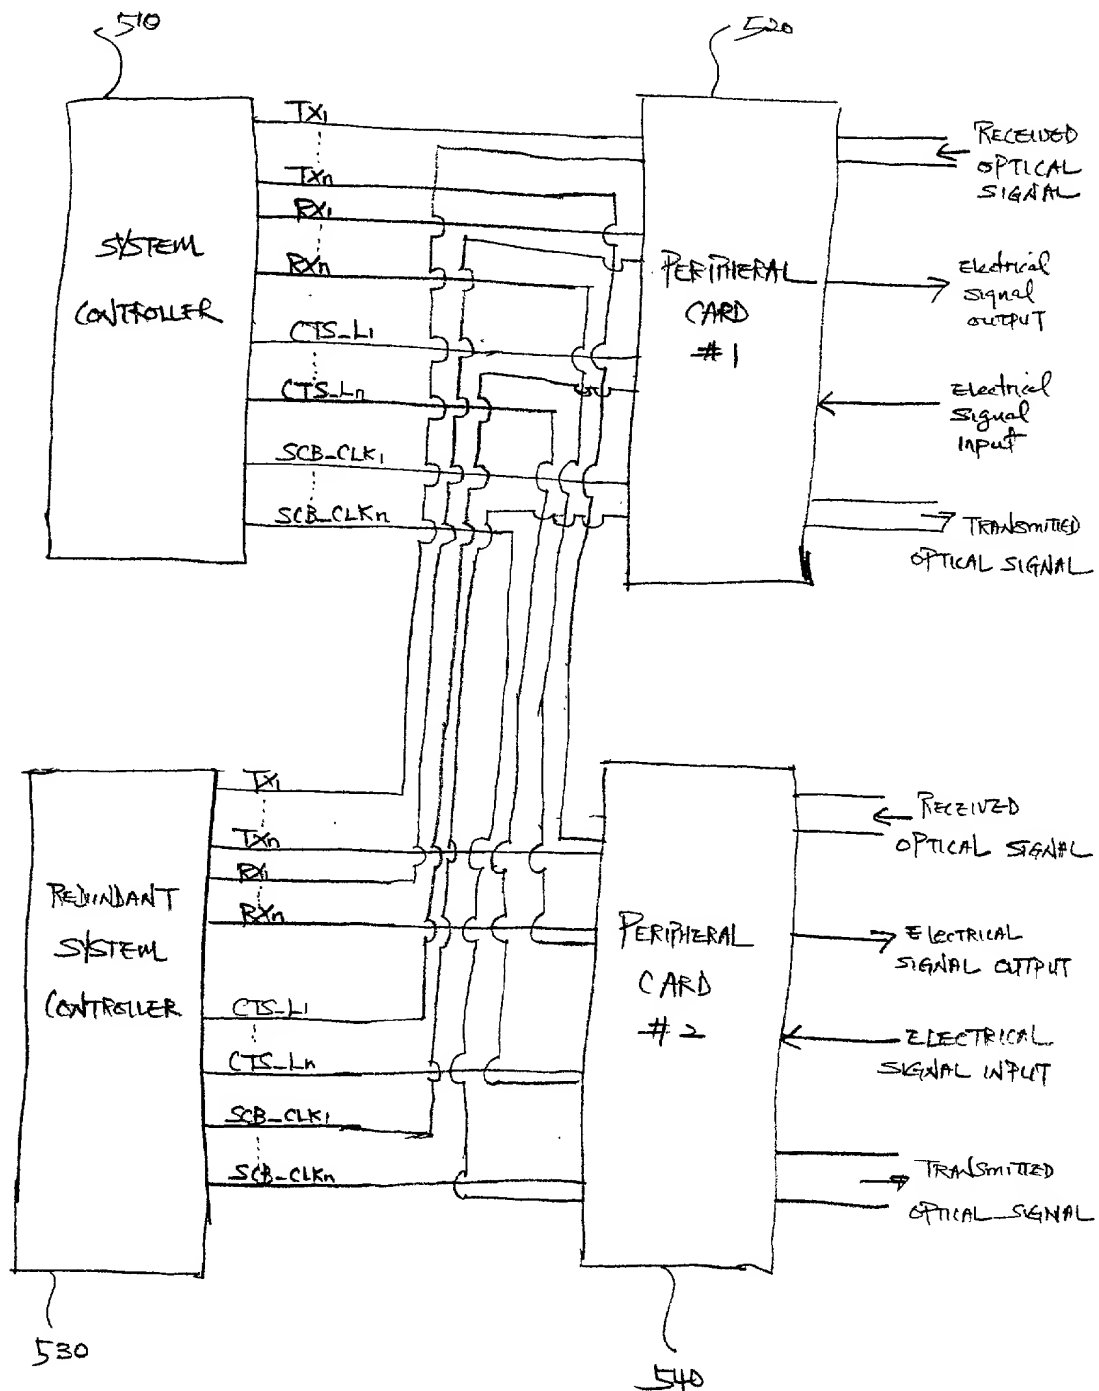 510
520
SYSTEM
CONTROLLER
TX1
TXn
RX1
RXn
CTS_L1
CTS_Ln
SCB_CLK1
SCB_CLKn
PERIPHERAL
CARD
#1
RECEIVED
OPTICAL
SIGNAL
Electrical
signal
OUTPUT
Electrical
Signal
Input
TRANSMITTED
OPTICAL SIGNAL
REDUNDANT
SYSTEM
CONTROLLER
TX1
TXn
RX1
RXn
CTS_L1
CTS_Ln
SCB_CLK1
SCB_CLKn
PERIPHERAL
CARD
#2
RECEIVED
OPTICAL SIGNAL
ELECTRICAL
SIGNAL OUTPUT
ELECTRICAL
SIGNAL INPUT
TRANSMITTED
OPTICAL SIGNAL
530
540